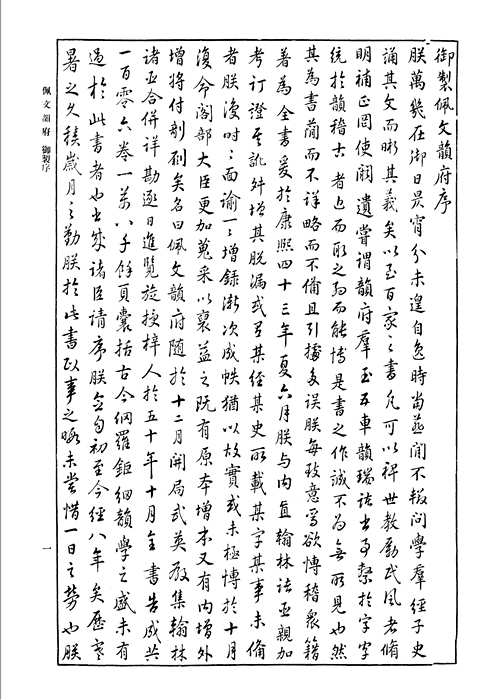 御製佩文韻府序
朕萬幾在御日昃宵分未遑自逸時當燕閒不輟問學羣經子史
誦其文而晰其義矣以至百家之書凡可以裨世教勵民風者脩
明補正罔使闕遺嘗謂韻府羣玉五車韻瑞諸書事繫於字字
統於韻稽古者近而取之約而能博是書之作誠不為無所見也然
其為書簡而不詳略而不備且引據多誤朕每致意焉欲博稽衆籍
著為全書爰於康熙四十三年夏六月朕與內直翰林諸臣親加
考訂證其訛舛增其脱漏或有某經某史所載某字某事未備
者朕復時時面諭一一增錄漸次成帙猶以故實或未極博於十月
復命閣部大臣更加蒐采以裒益之既有原本增本又有內增外
增將付剞劂矣名曰佩文韻府隨於十二月開局武英殿集翰林
諸臣合併詳勘逐日進覽旋授梓人於五十年十月全書告成共
一百零六卷一萬八千餘頁囊括古今網羅鉅細韻學之盛未有
過於此書者也書成諸臣請序朕念自初至今經八年矣歷寒
暑之久積歲月之勤朕於此書政事之暇未嘗惜一日之勞也朕
佩文韻府 御製序
一